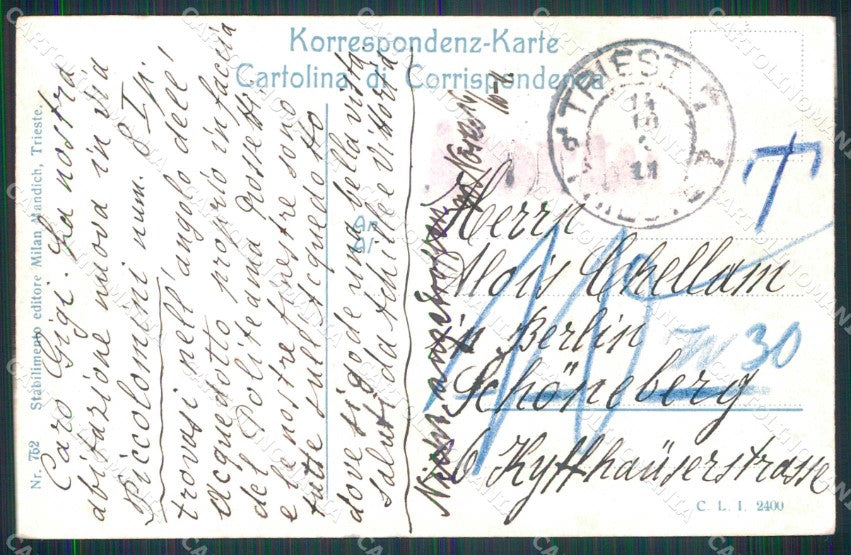 Korrespondenz-Karte
Cartolina di Corrispondenza
An
Al
Nr. 752 Stabilimento editore Milan Mandich, Trieste.
Caro Gigi. La nostra
abitazione nuova in via
Piccolomini num. 8 I p.
trovasi nell'angolo dell'
Acquedotto proprio in faccia
del Politeama Rossetti
e le nostre finestre sono
tutte sull'Acquedotto
dove si gode una bella vista
Saluti da Achille e Vittoria
TRIEST 1
TRIESTE 1
T
Herrn
Alois Chellam
in Berlin
W 30
Schöneberg
6 Kyffhäuserstrasse
C. L. I. 2400
CARTOLINOMANIA